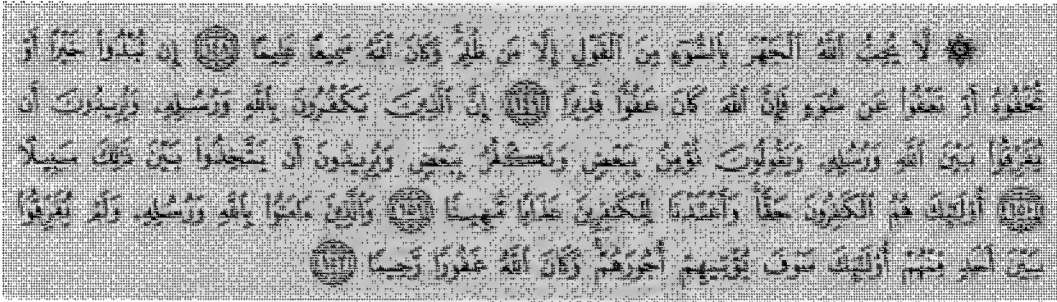 ۞ لَّا يُحِبُّ ٱللَّهُ ٱلْجَهْرَ بِٱلسُّوٓءِ مِنَ ٱلْقَوْلِ إِلَّا مَن ظُلِمَ وَكَانَ ٱللَّهُ سَمِيعًا عَلِيمًا ١٤٨ إِن تُبْدُوا۟ خَيْرًا أَوْ
تُخْفُوهُ أَوْ تَعْفُوا۟ عَن سُوٓءٍ فَإِنَّ ٱللَّهَ كَانَ عَفُوًّا قَدِيرًا ١٤٩ إِنَّ ٱلَّذِينَ يَكْفُرُونَ بِٱللَّهِ وَرُسُلِهِۦ وَيُرِيدُونَ أَن
يُفَرِّقُوا۟ بَيْنَ ٱللَّهِ وَرُسُلِهِۦ وَيَقُولُونَ نُؤْمِنُ بِبَعْضٍ وَنَكْفُرُ بِبَعْضٍ وَيُرِيدُونَ أَن يَتَّخِذُوا۟ بَيْنَ ذَٰلِكَ سَبِيلًا
١٥٠ أُو۟لَٰٓئِكَ هُمُ ٱلْكَٰفِرُونَ حَقًّا وَأَعْتَدْنَا لِلْكَٰفِرِينَ عَذَابًا مُّهِينًا ١٥١ وَٱلَّذِينَ ءَامَنُوا۟ بِٱللَّهِ وَرُسُلِهِۦ وَلَمْ يُفَرِّقُوا۟
بَيْنَ أَحَدٍ مِّنْهُمْ أُو۟لَٰٓئِكَ سَوْفَ يُؤْتِيهِمْ أُجُورَهُمْ وَكَانَ ٱللَّهُ غَفُورًا رَّحِيمًا ١٥٢